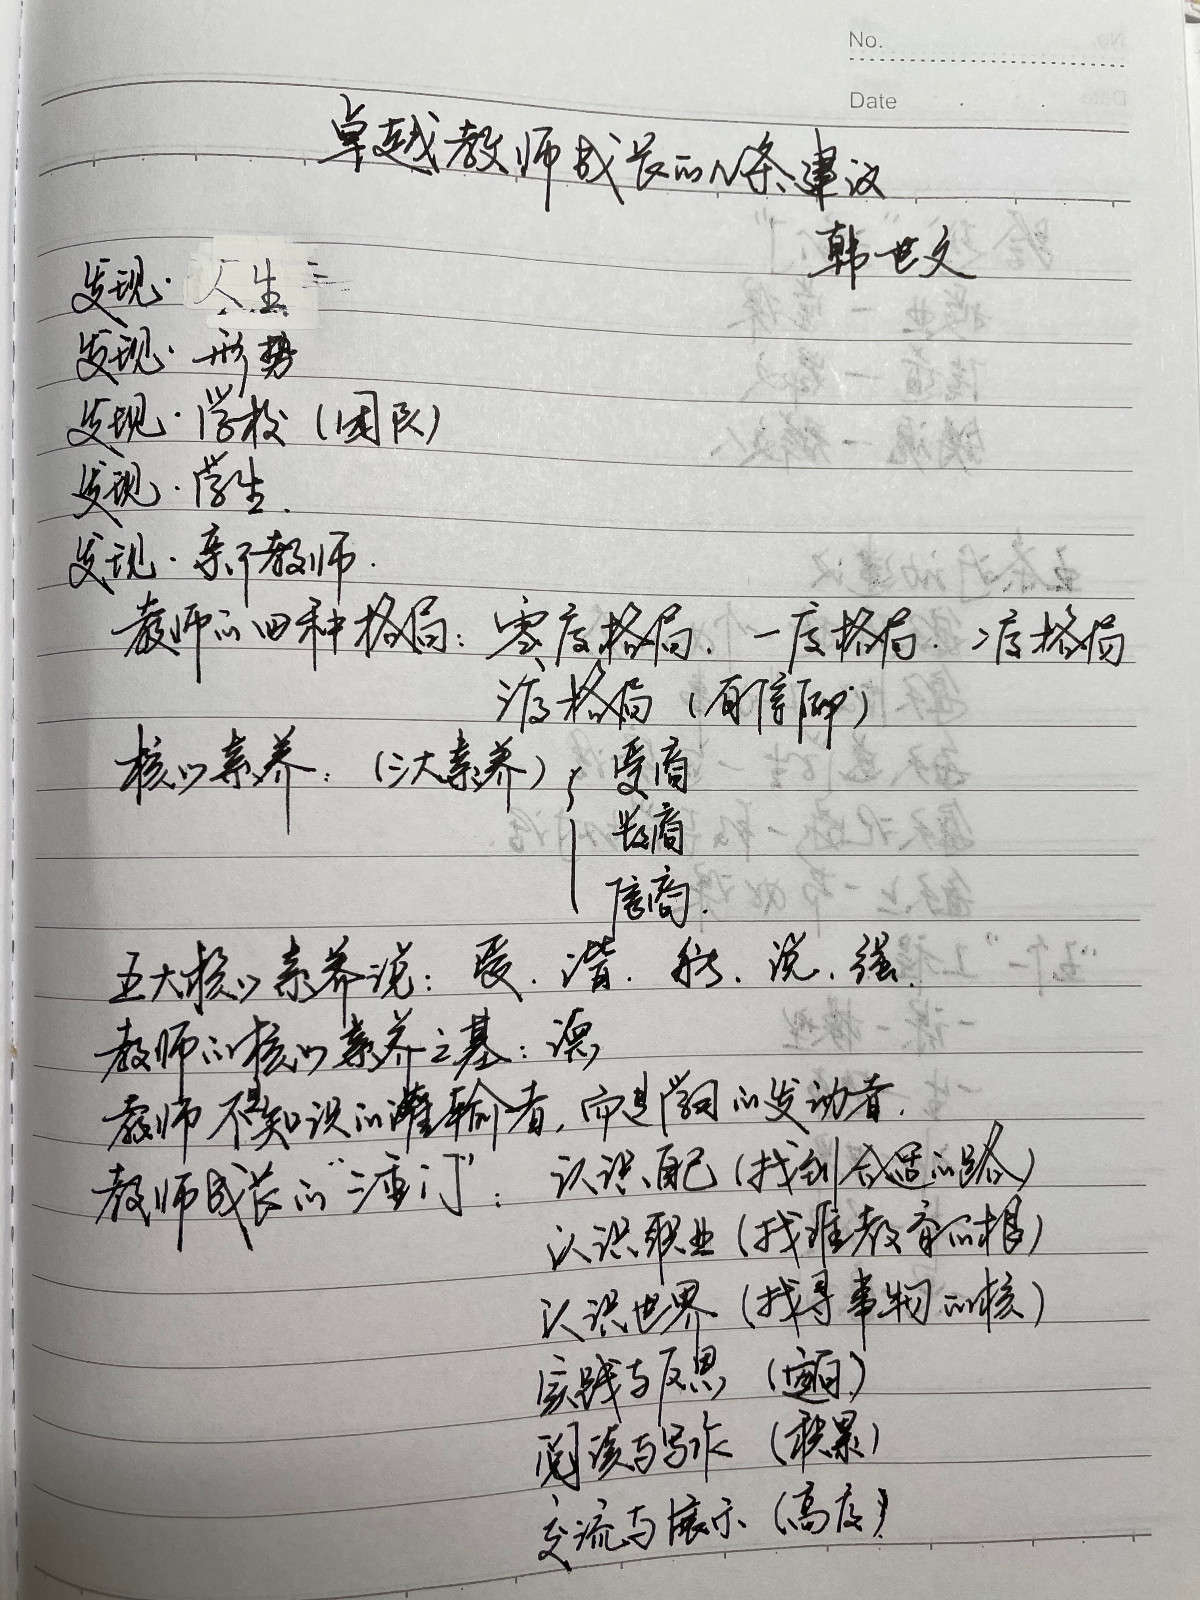 No.
Date
卓越教师成长的N条建议
韩世文
发现·人生
发现·形势
发现·学校(团队)
发现·学生.
发现·亲不教师.
教师的四种格局:零度格局、一度格局、二度格局
三度格局(有信仰)
核心素养:(三大素养) 爱商
数商
信商.
五大核心素养说:爱.谐.能.说.强.
教师的核心素养之基:德
教师不是知识的灌输者,而是学习的发动者.
教师成长的"三重门":认识自己(找到合适的路)
认识职业(找准教育的根)
认识世界(找寻事物的核)
实践与反思()
阅读与写作(积累)
交流与展示(高度)